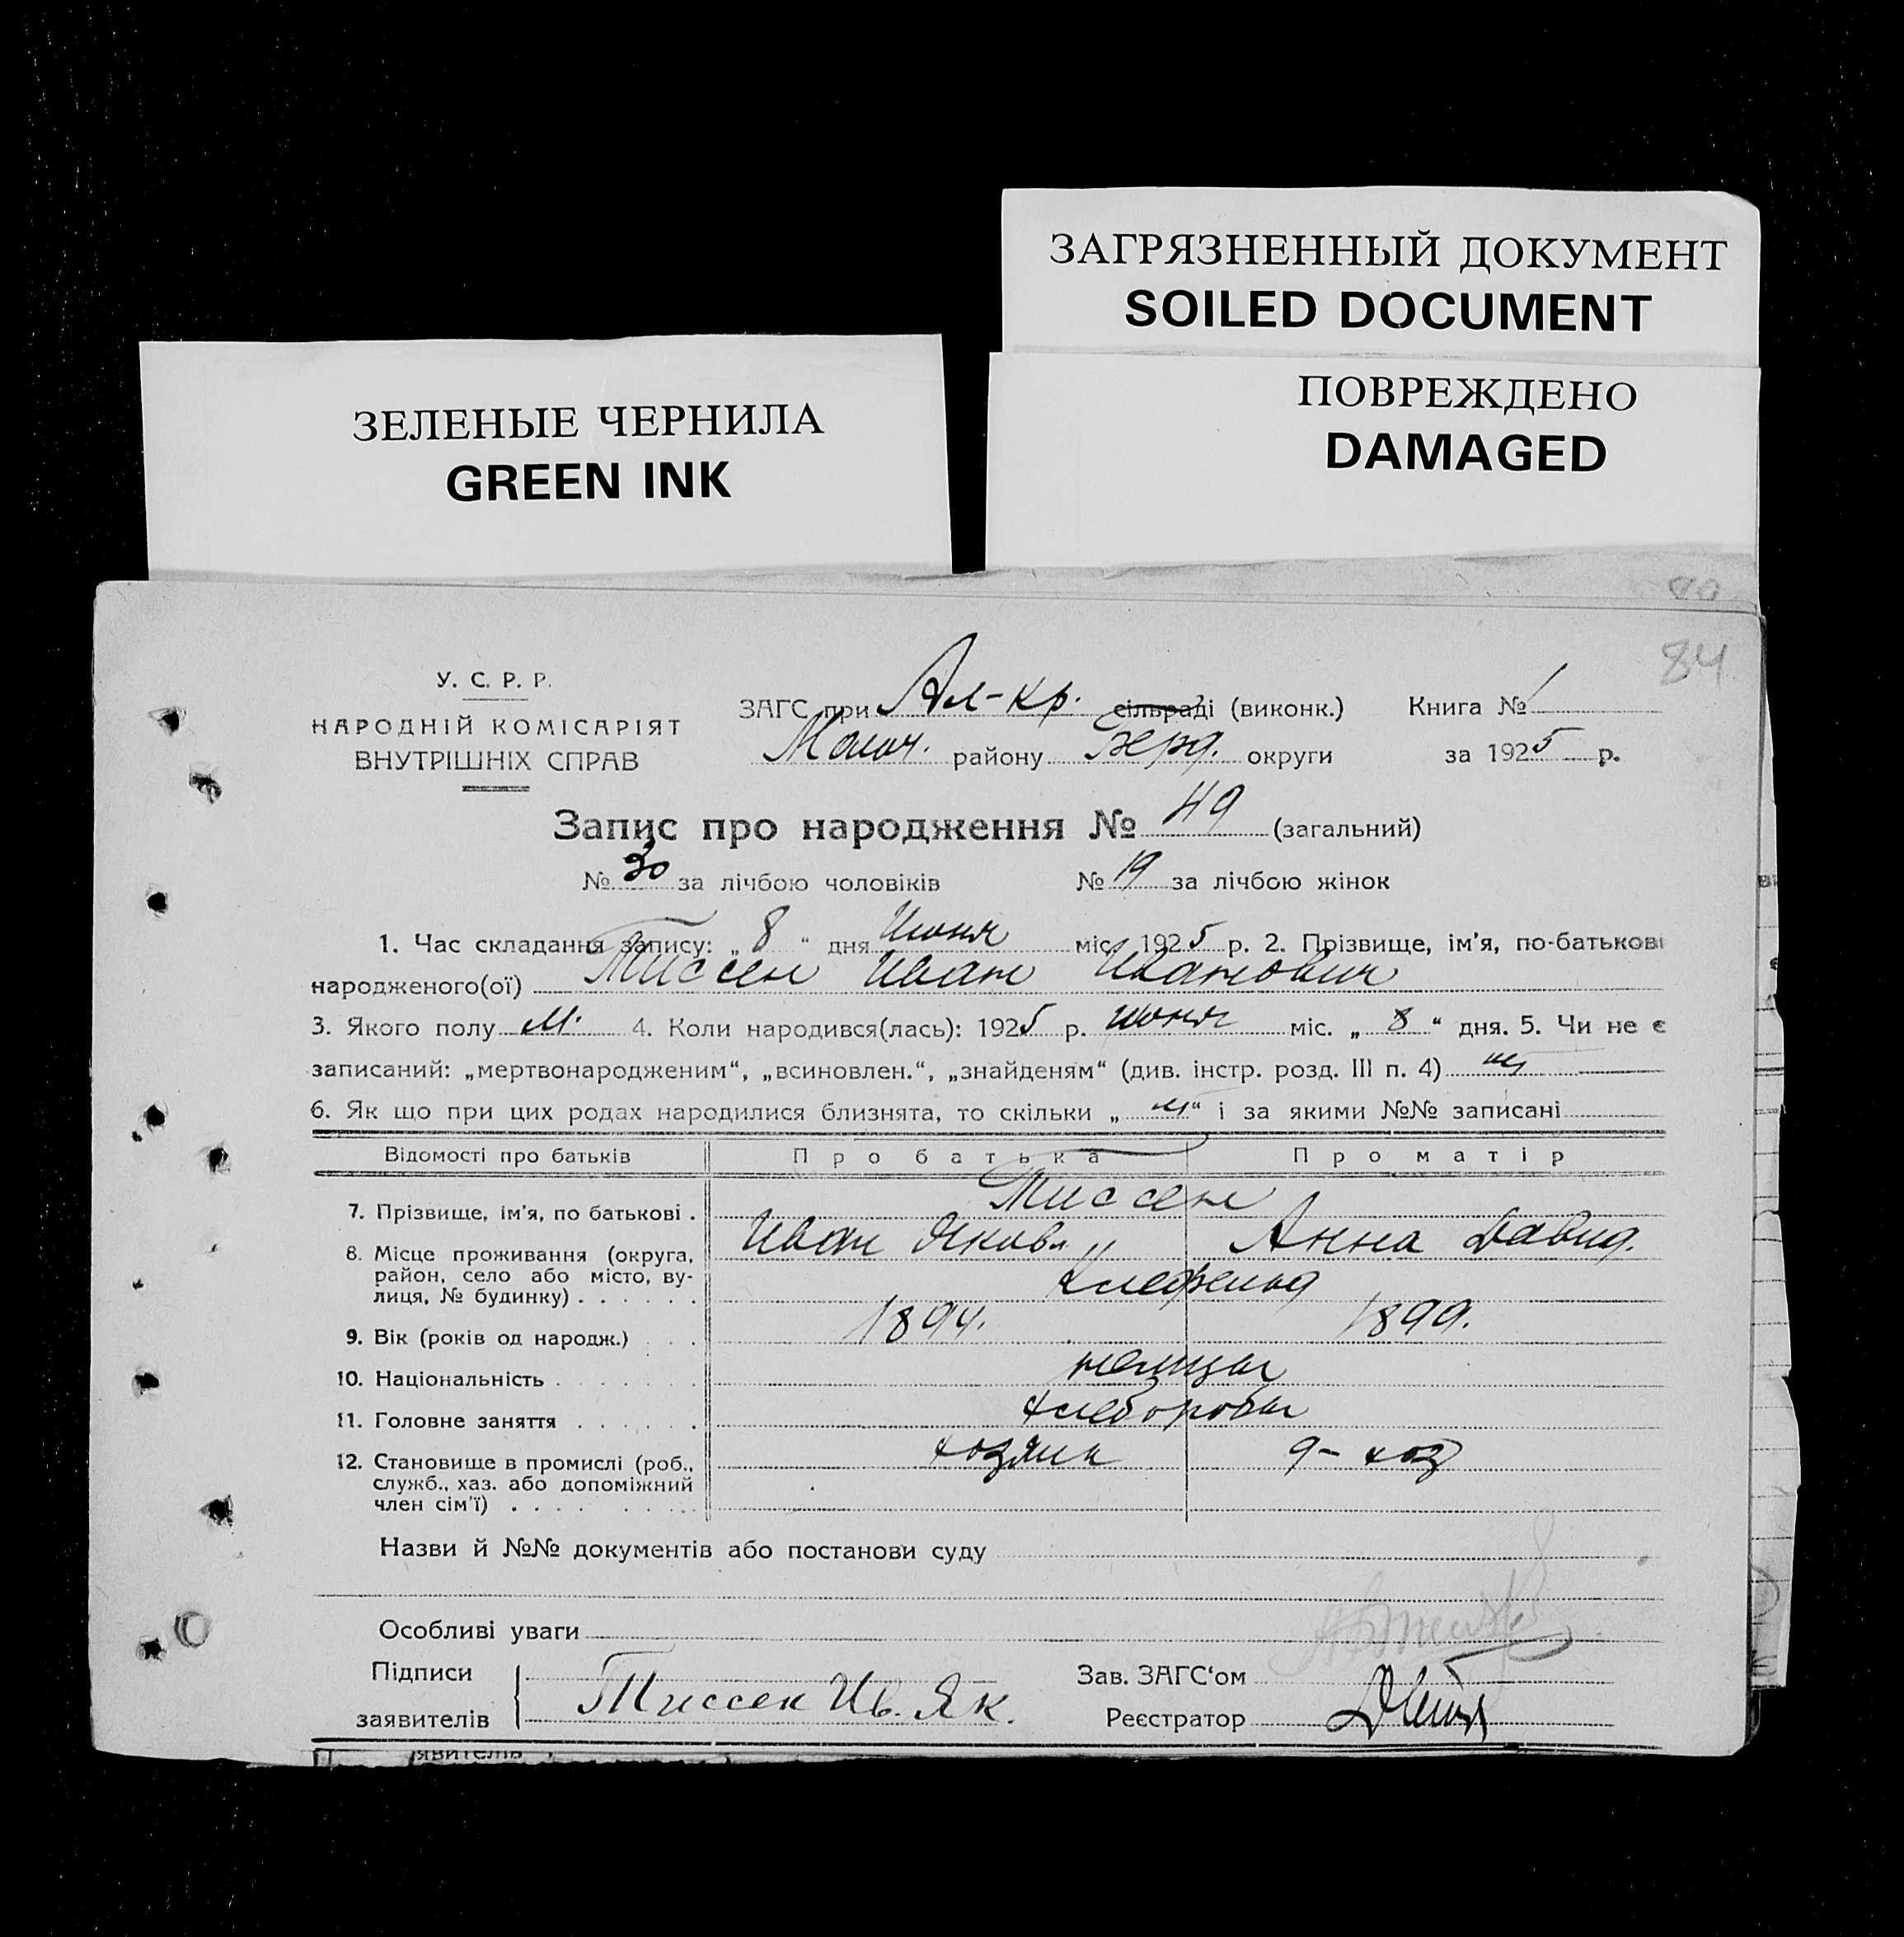 ЗАГРЯЗНЕННЫЙ ДОКУМЕНТ
SOILED DOCUMENT
ЗЕЛЕНЫЕ ЧЕРНИЛА
GREEN INK
ПОВРЕЖДЕНО
DAMAGED
84
У. С. Р. Р.
НАРОДНІЙ КОМІСАРІЯТ
ВНУТРІШНІХ СПРАВ
ЗАГС при Ал-кр. сільраді (виконк.) Книга № 1
Молоч. району Берд. округи за 1925 р.
Запис про народження № 49 (загальний)
№ 30 за лічбою чоловіків № 19 за лічбою жінок
1. Час складання запису: „ 8 “ дня Июня міс. 1925 р. 2. Прізвище, ім'я, по-батькові
народженого(ої) Тиссен Иван Иванович
3. Якого полу м. 4. Коли народився(лась): 1925 р. июня міс. „ 8 “ дня. 5. Чи не є
записаний: „мертвонародженим“, „всиновлен.“, „знайденям“ (див. інстр. розд. III п. 4)
6. Як що при цих родах народилися близнята, то скільки „ “ і за якими №№ записані
Відомості про батьків Про батька Про матір
7. Прізвище, ім'я, по батькові . Тиссен
Иван Яковл. Анна Давид.
8. Місце проживання (округа, район, село або місто, вулиця, № будинку) . . . . . . Клефельд
9. Вік (років од народж.) . . 1894. 1899.
10. Національність . . . . . . . немцы
11. Головне заняття . . . . . . хлеборобы
12. Становище в промислі (роб., служб., хаз. або допоміжний член сім'ї) . . . . . . . . хозяин д-хоз
Назви й №№ документів або постанови суду
Особливі уваги
Підписи
заявителів Тиссен Ив. Як.
Зав. ЗАГС'ом
Реєстратор